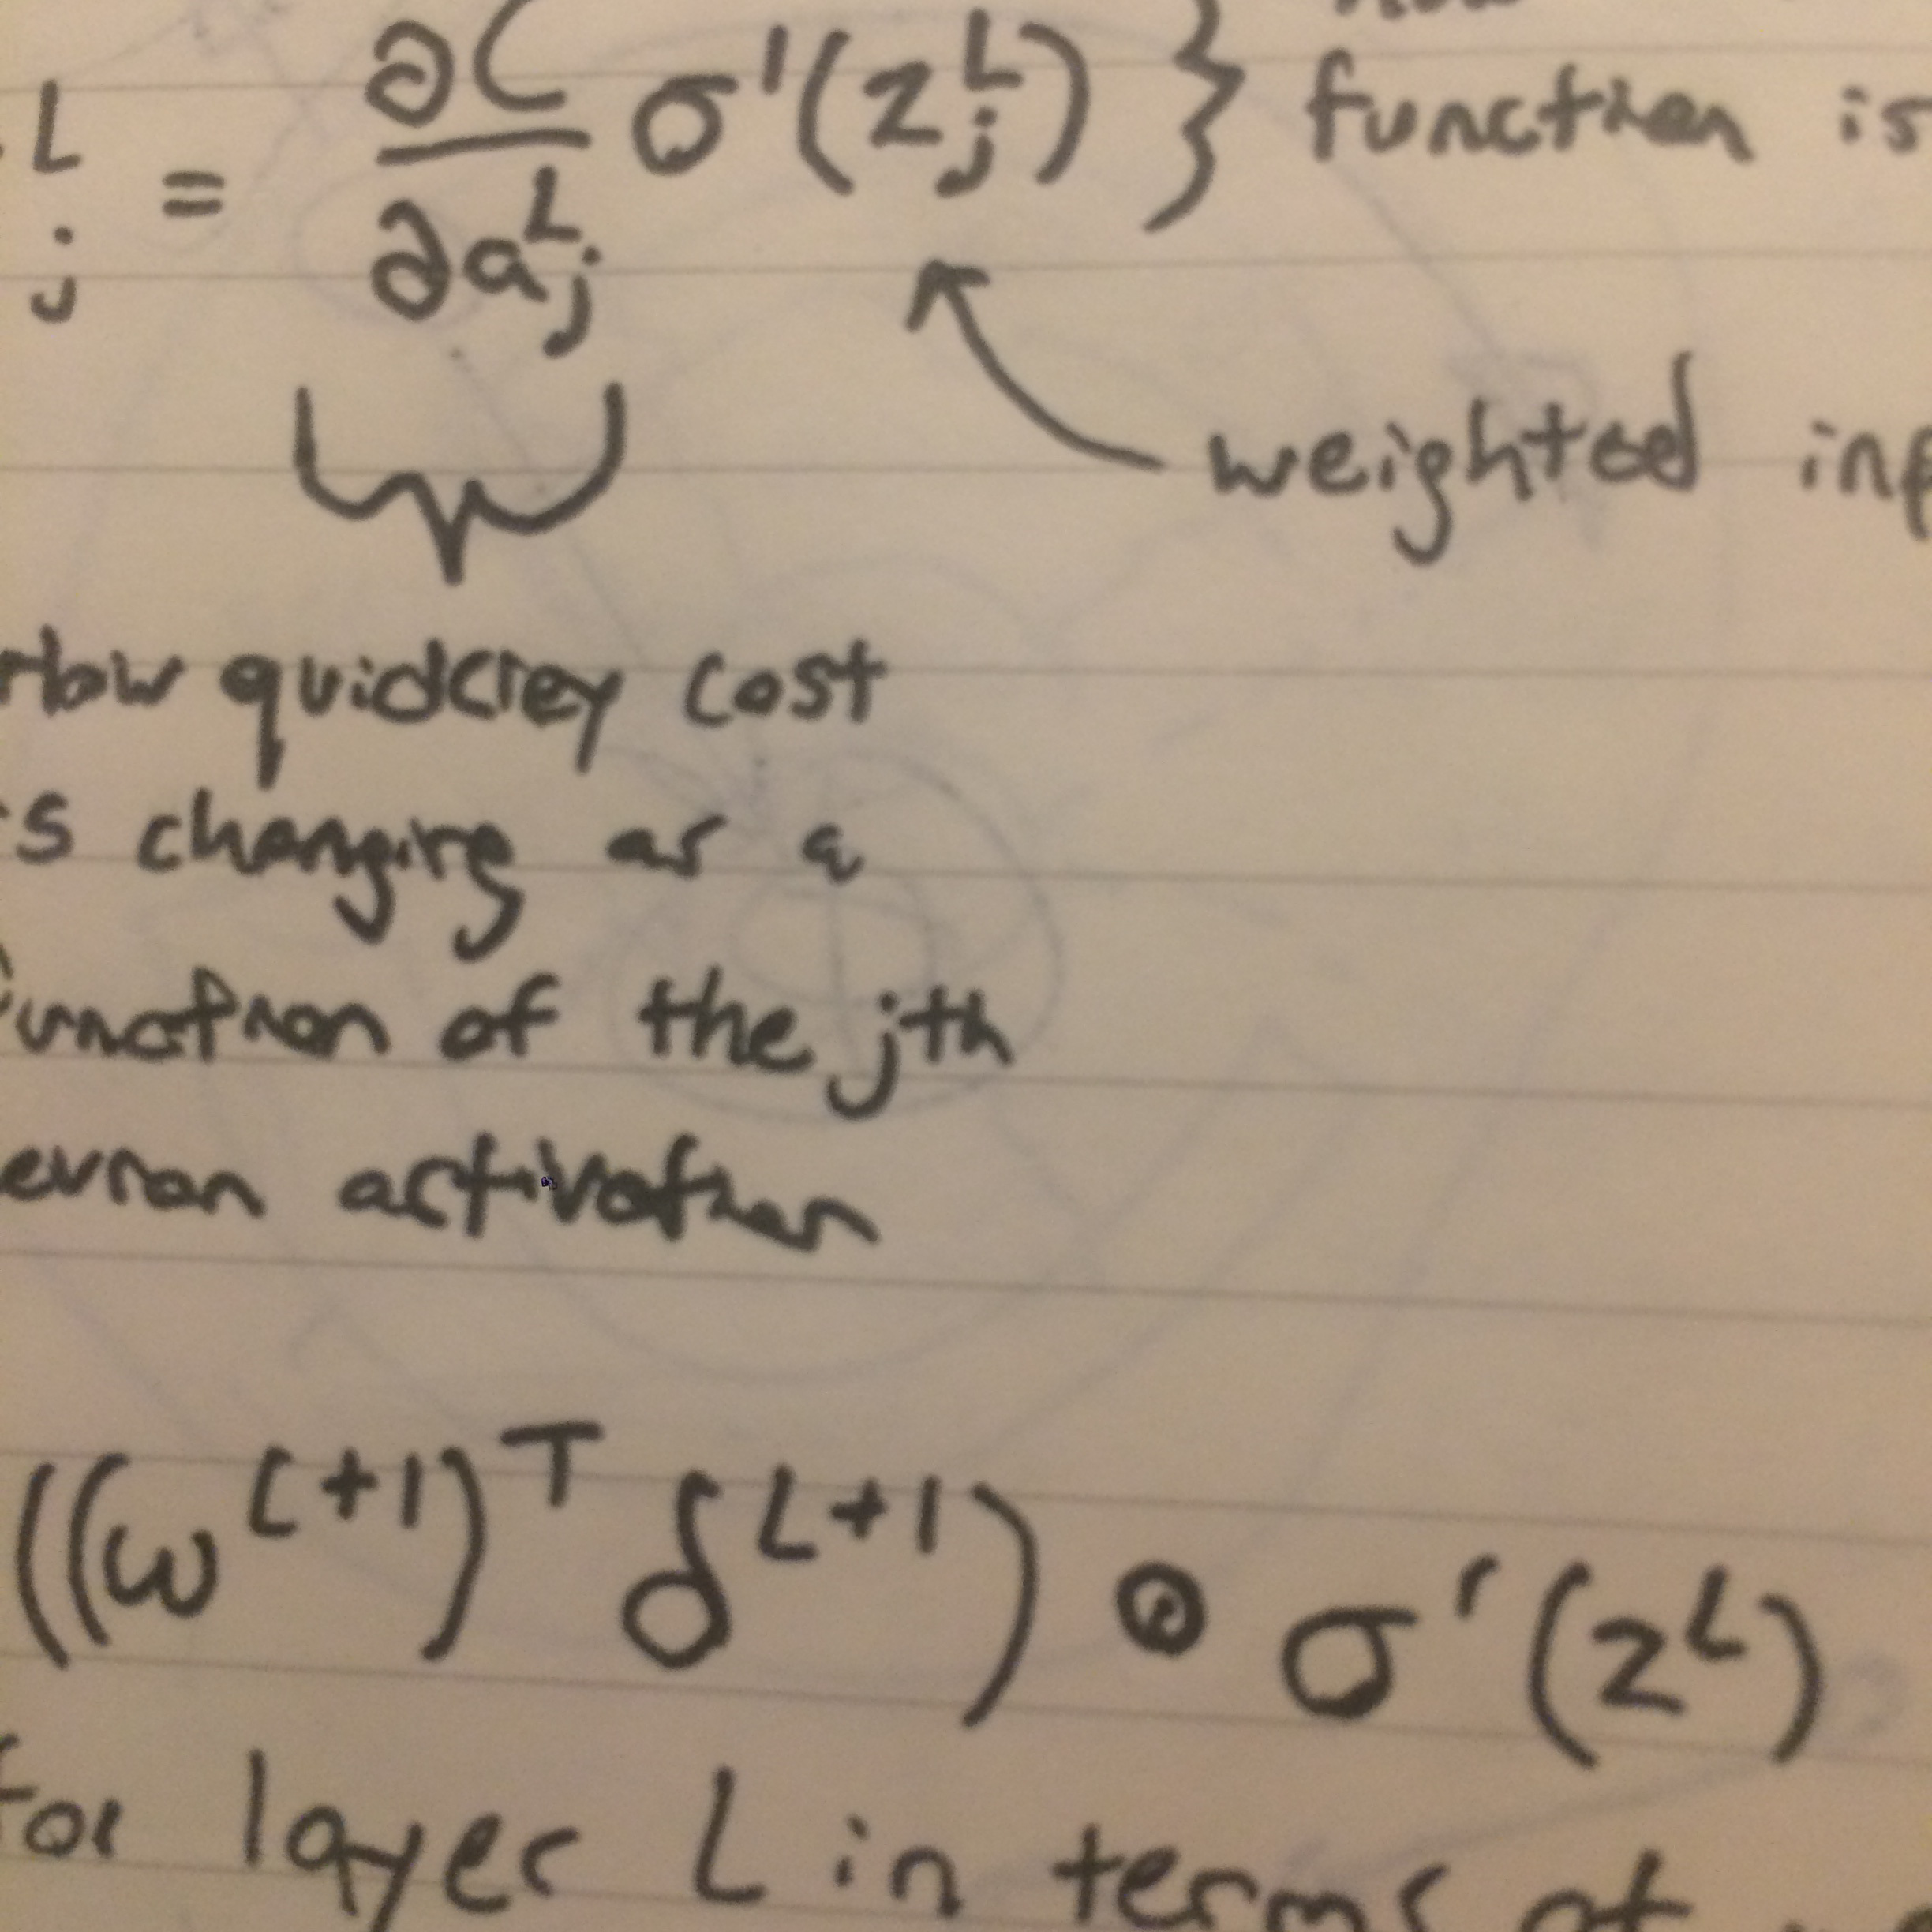 L
j = ∂C/∂a^L_j σ'(z^L_j) } function is
weighted inp
How quickley cost
is changing as a
function of the jth
euron activation
((w^{L+1})^T δ^{L+1}) ⊙ σ'(z^L)
for layer L in terms of